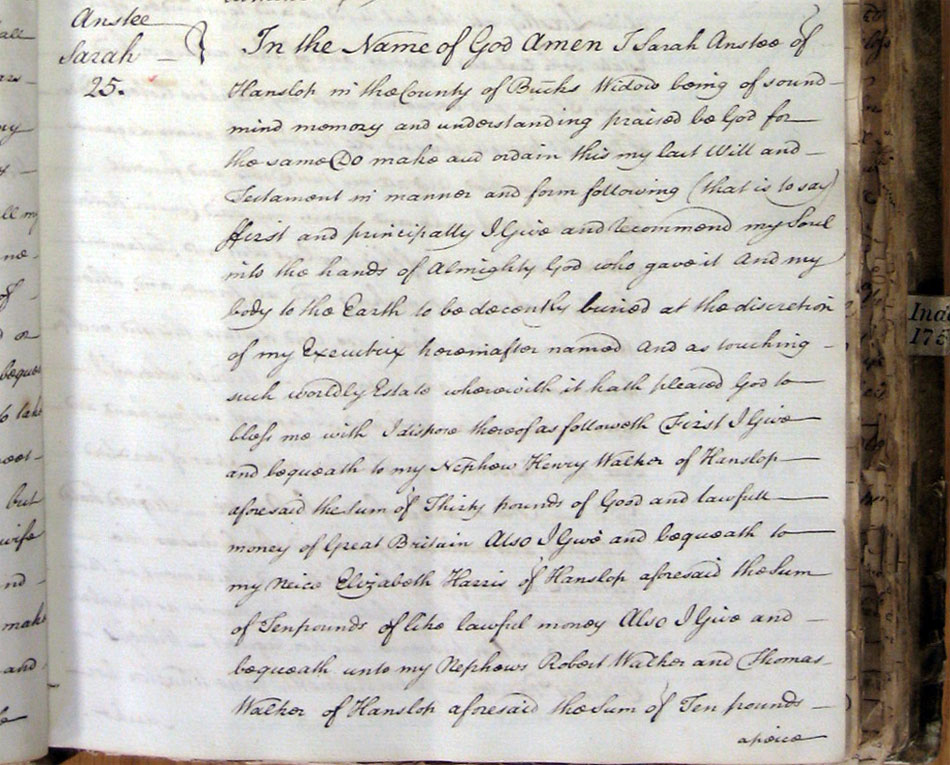 Anstee
Sarah
25.
In the Name of God Amen I Sarah Anstee of
Hanslop in the County of Bucks Widow being of sound
mind memory and understanding praised be God for
the same Do make and ordain this my last Will and
Testament in manner and form following (that is to say)
ffirst and principally I Give and Recommend my Soul
into the hands of Almighty God who gave it And my
body to the Earth to be decently buried at the discretion
of my Executrix hereinafter named And as touching
such worldly Estate wherewith it hath pleased God to
bless me with I dispose thereof as followeth First I Give
and bequeath to my Nephew Henry Walker of Hanslop
aforesaid the Sum of Thirty pounds of Good and lawfull
money of Great Britain Also I Give and bequeath to
my Neice Elizabeth Harris of Hanslop aforesaid the Sum
of Ten pounds of like lawful money Also I Give and
bequeath unto my Nephews Robert Walker and Thomas
Walker of Hanslop aforesaid the Sum of Ten pounds
apeice
all
my
all my
of
d or
beque
to take
but
wife
nd
make
and
Ind
175